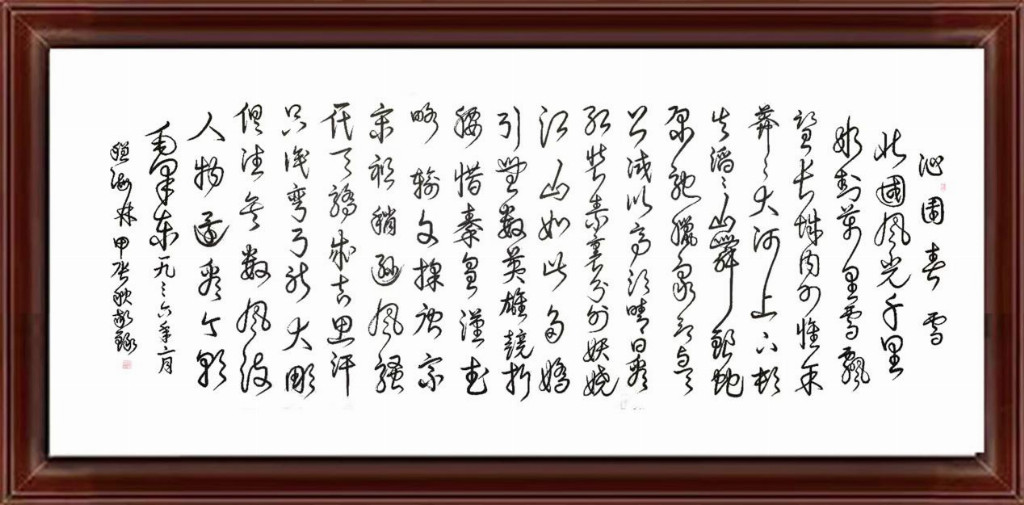 沁園春 雪
北國風光千里
冰封萬里雪飄
望长城内外惟余
莽々大河上下顿
失滔々山舞銀蛇
原馳蠟象欲与天
公试比高须晴日看
红装素裹分外妖娆
江山如此多嬌
引無数英雄競折
腰惜秦皇漢武
略输文採唐宗
宋祖稍逊風騷
一代天驕成吉思汗
只識彎弓射大雕
俱往矣数風流
人物還看今朝
毛澤東一九三六年二月
敬録